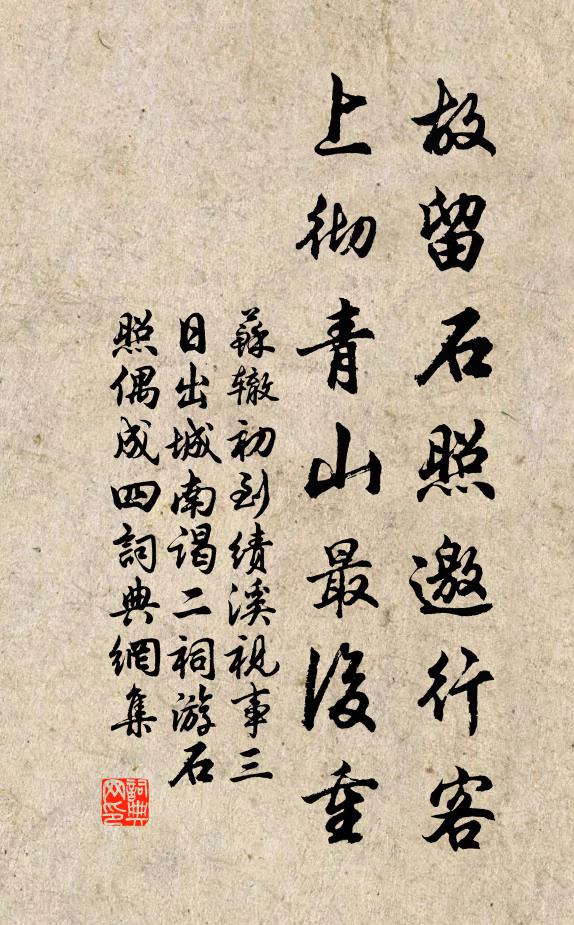 故留石照邀行客
上彻青山最後重
蘇辙初到績溪視事三
日出城南谒二祠游石
照偶成四詞典網集
詞典
网印